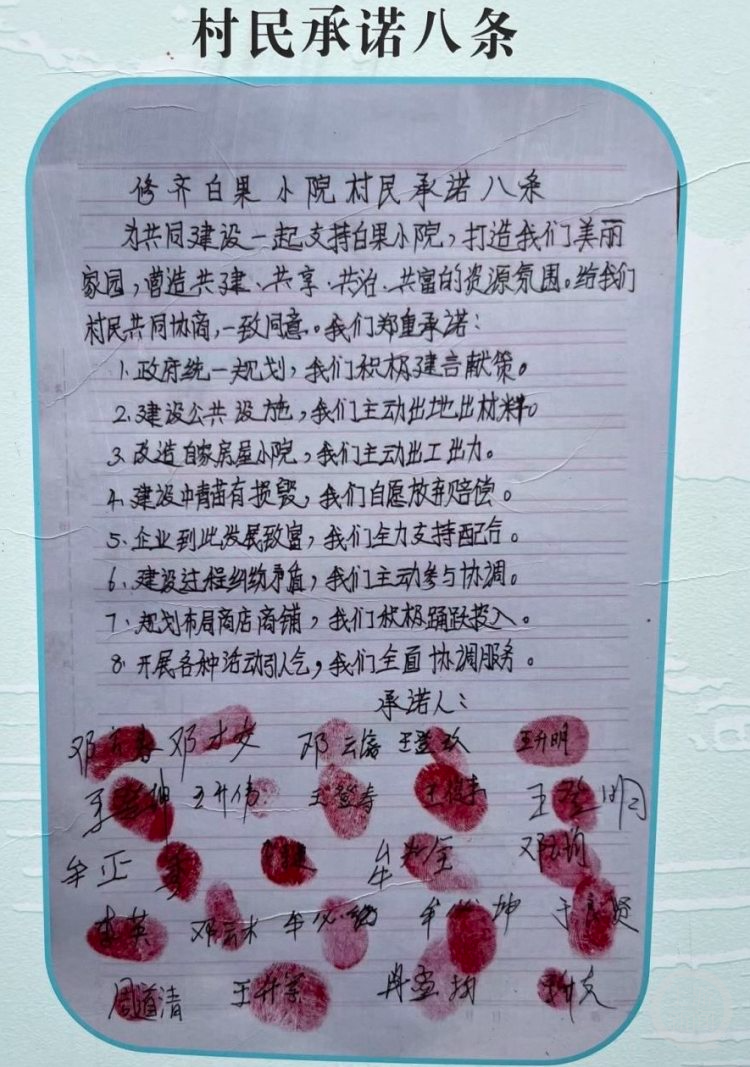 村民承诺八条
修齐白果小院村民承诺八条
为共同建设一起支持白果小院，打造我们美丽
家园，营造共建、共享、共治、共富的资源氛围。给我们
村民共同协商，一致同意。我们郑重承诺：
1、政府统一规划，我们积极建言献策。
2、建设公共设施，我们主动出地出材料。
3、改造自家房屋小院，我们主动出工出力。
4、建设中青苗有损毁，我们自愿放弃赔偿。
5、企业到此发展致富，我们全力支持配合。
6、建设过程纠纷矛盾，我们主动参与协调。
7、规划布局商店商铺，我们积极踊跃投入。
8、开展各种活动引人气，我们全面协调服务。
承诺人：
邓 邓才安 邓云富 王登 王升明
坤 王升伟 王登寿 王 王登明
牟正 牟 全 邓云均
李英 邓云木 牟必 牟必坤 于良贤
周道清 王升 冉登 王升文